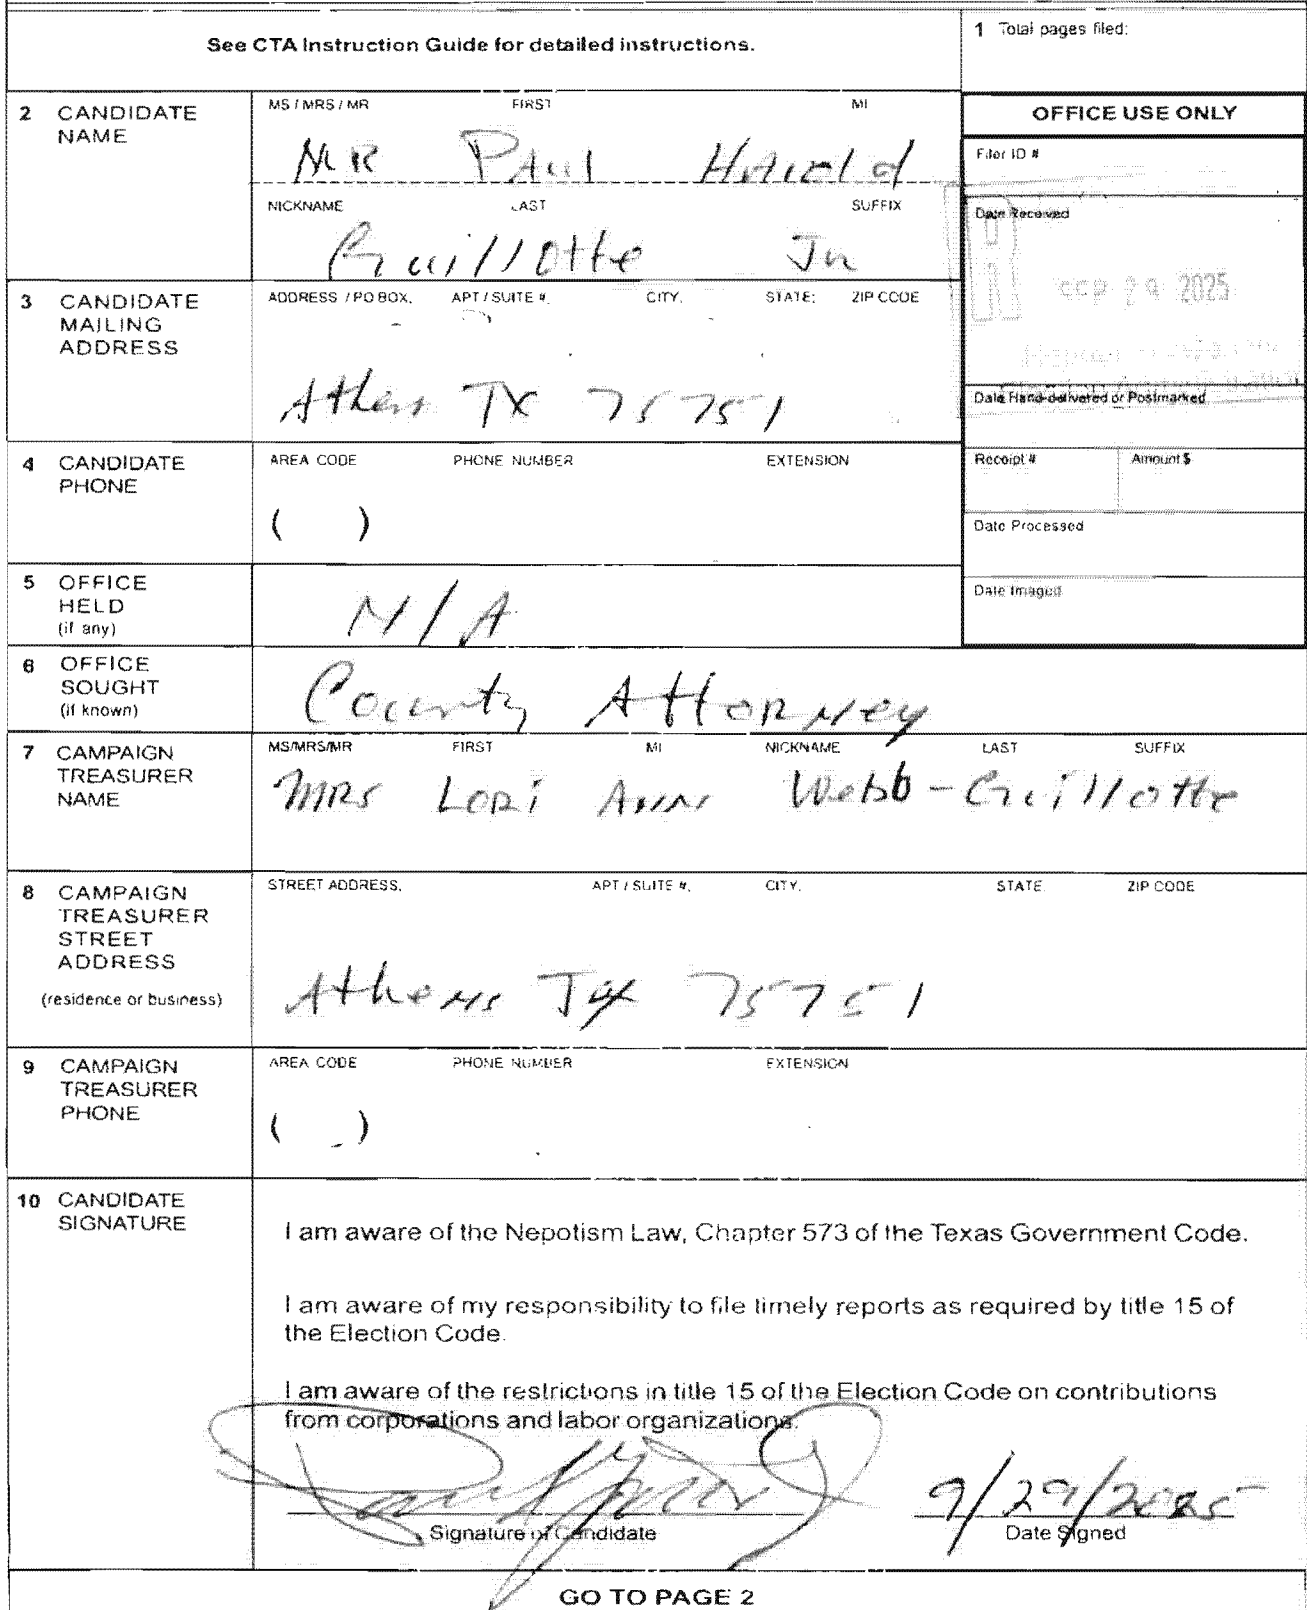 See CTA Instruction Guide for detailed instructions.
1 Total pages filed:
2 CANDIDATE NAME
MS / MRS / MR FIRST MI
MR PAUL Harold
NICKNAME LAST SUFFIX
Guillotte Jr
OFFICE USE ONLY
Filer ID #
Date Received
SEP 29 2025
Date Hand-delivered or Postmarked
Receipt # Amount $
Date Processed
Date Imaged
3 CANDIDATE MAILING ADDRESS
ADDRESS / PO BOX; APT / SUITE #; CITY; STATE; ZIP CODE
Athens TX 75751
4 CANDIDATE PHONE
AREA CODE PHONE NUMBER EXTENSION
( )
5 OFFICE HELD (if any)
N/A
6 OFFICE SOUGHT (if known)
County Attorney
7 CAMPAIGN TREASURER NAME
MS/MRS/MR FIRST MI NICKNAME LAST SUFFIX
MRS LORi Ann Webb-Guillotte
8 CAMPAIGN TREASURER STREET ADDRESS
(residence or business)
STREET ADDRESS; APT / SUITE #; CITY; STATE; ZIP CODE
Athens TX 75751
9 CAMPAIGN TREASURER PHONE
AREA CODE PHONE NUMBER EXTENSION
( )
10 CANDIDATE SIGNATURE
I am aware of the Nepotism Law, Chapter 573 of the Texas Government Code.
I am aware of my responsibility to file timely reports as required by title 15 of
the Election Code.
I am aware of the restrictions in title 15 of the Election Code on contributions
from corporations and labor organizations.
9/29/2025
Signature of Candidate Date Signed
GO TO PAGE 2